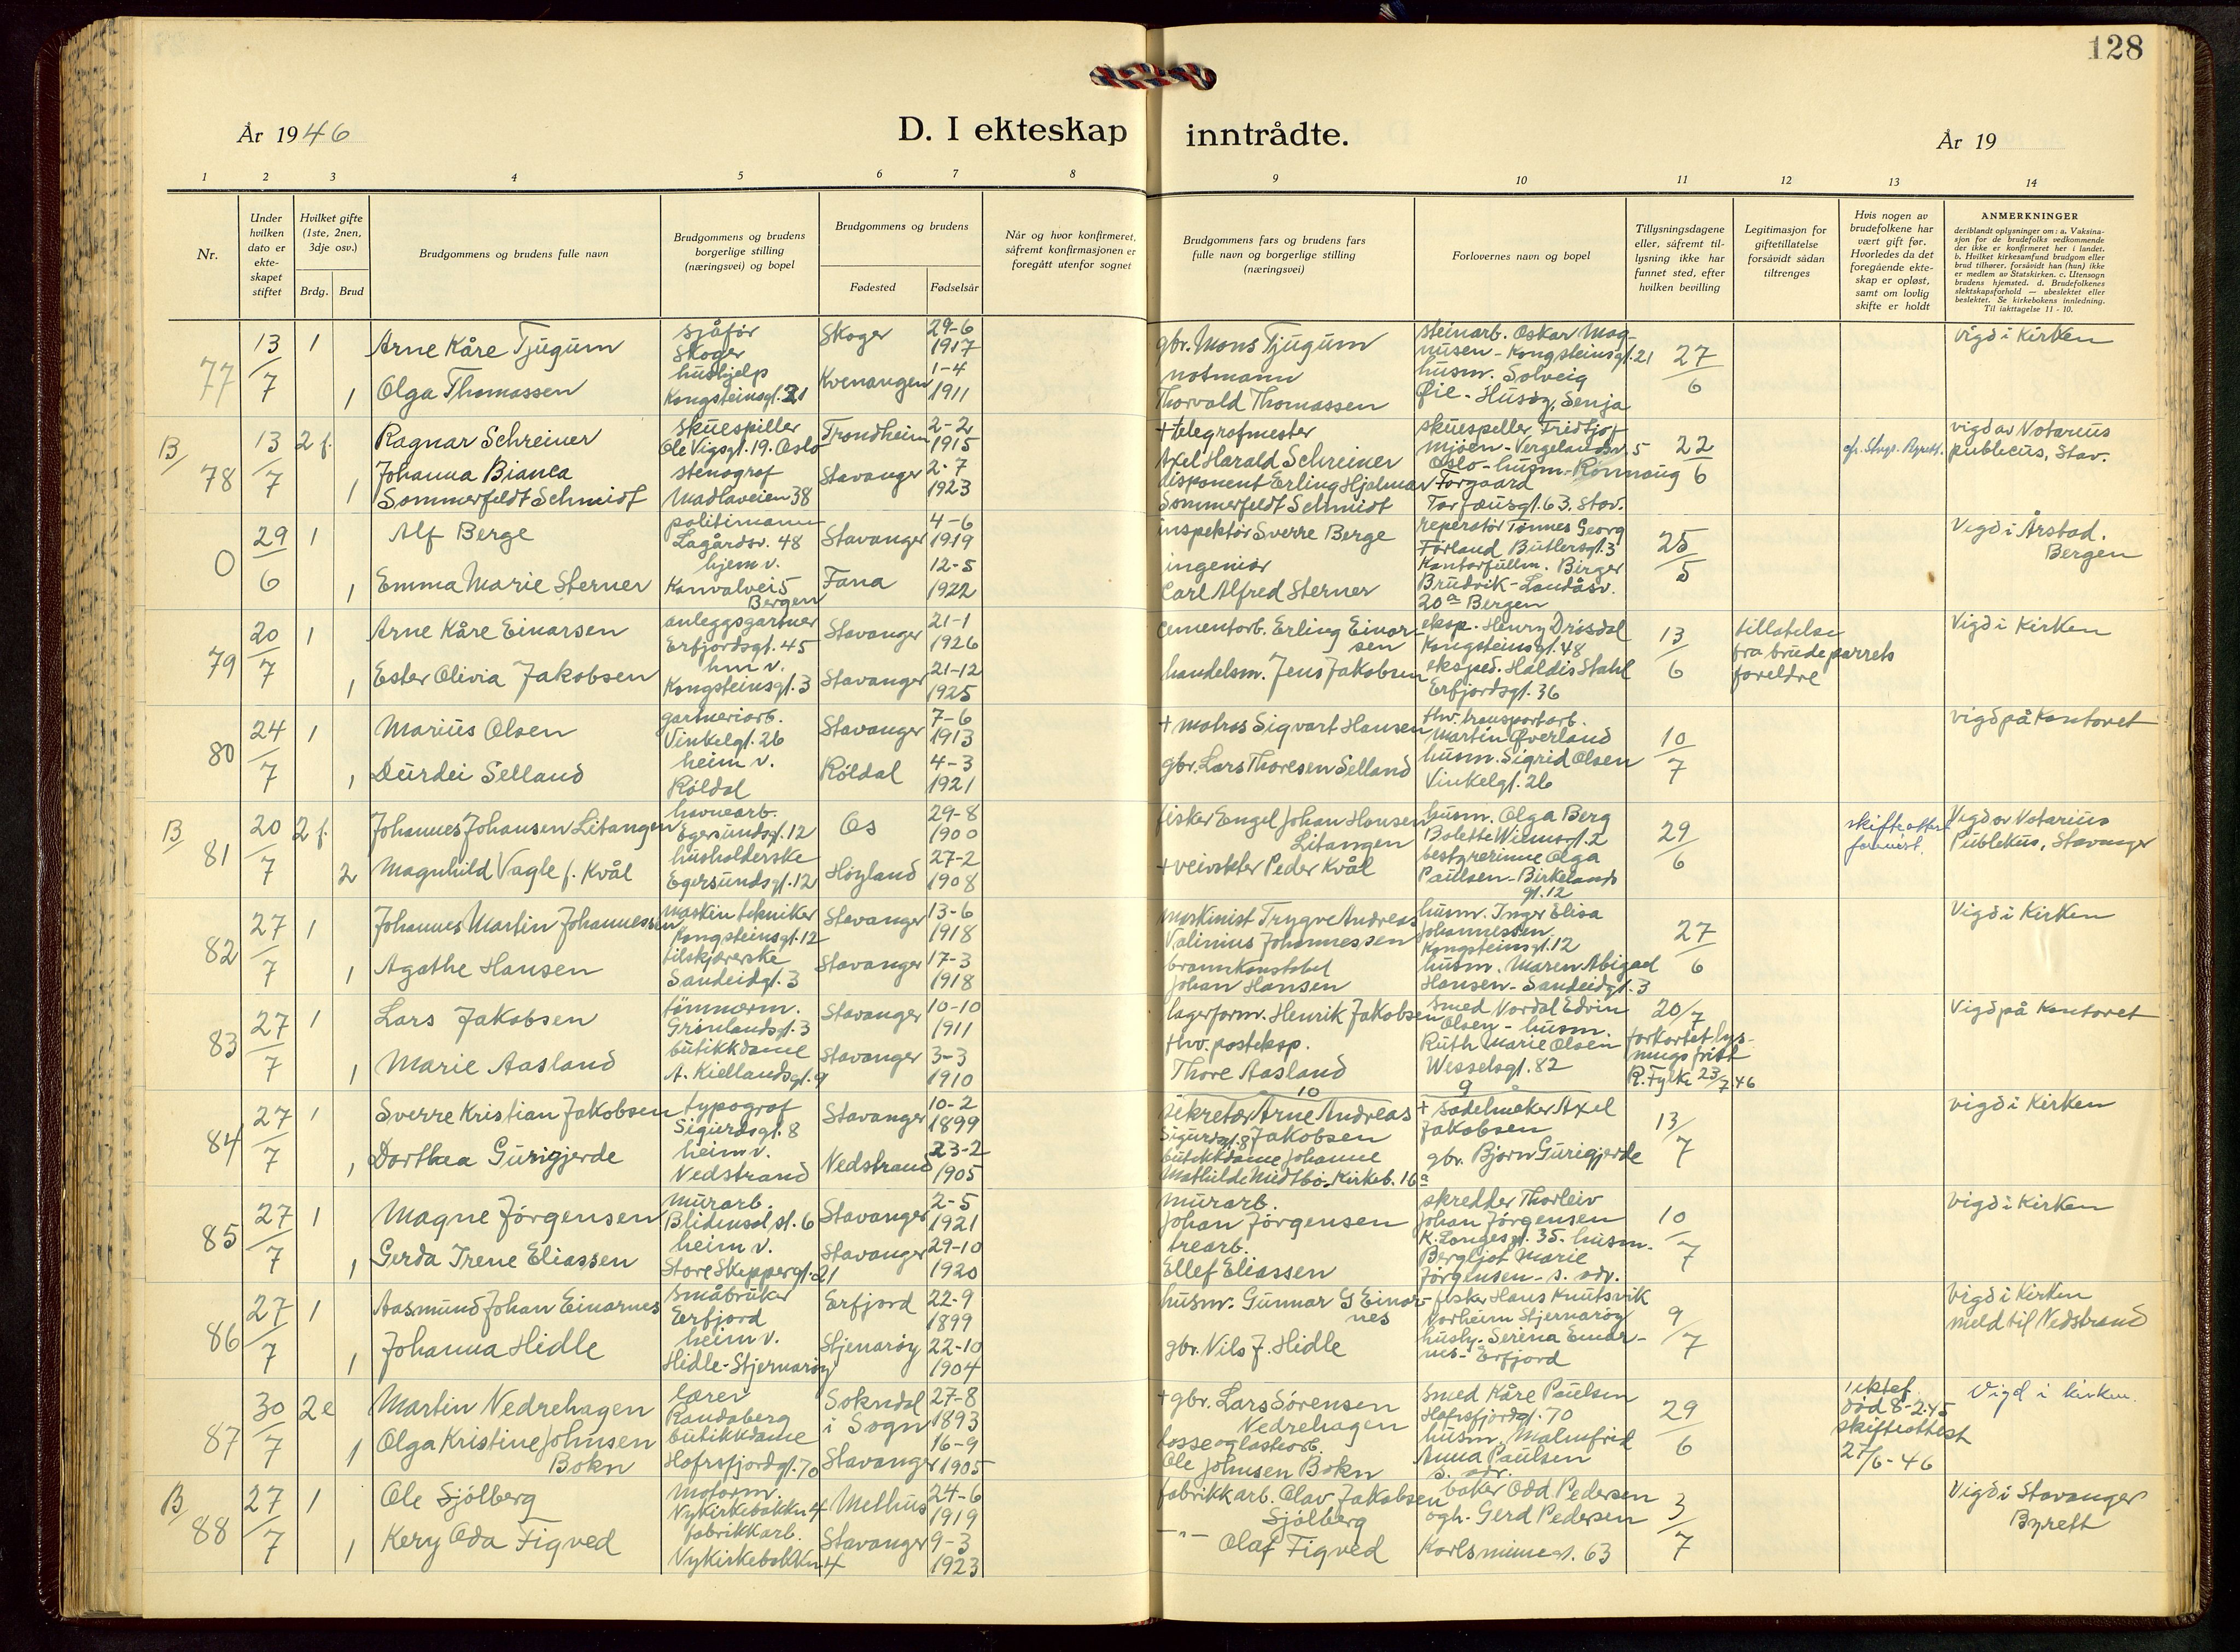 128
År 1946
D. I ekteskap inntrådte.
År 19
1 2 3 4 5 6 7 8 9 10 11 12 13 14
Nr.
Under hvilken dato er ekteskapet stiftet
Hvilket gifte (1ste, 2nen, 3dje osv.)
Brdg. Brud
Brudgommens og brudens fulle navn
Brudgommens og brudens borgerlige stilling (næringsvei) og bopel
Brudgommens og brudens
Fødested Fødselsår
Når og hvor konfirmeret, såfremt konfirmasjonen er foregått utenfor sognet
Brudgommens fars og brudens fars fulle navn og borgerlige stilling (næringsvei)
Forlovernes navn og bopel
Tillysningsdagene eller, såfremt tillysning ikke har funnet sted, efter hvilken bevilling
Legitimasjon for giftetillatelse forsåvidt sådan tiltrenges
Hvis nogen av brudefolkene har vært gift før. Hvorledes da det foregående ekteskap er opløst, samt om lovlig skifte er holdt
ANMERKNINGER
deriblandt oplysninger om: a. Vaksinasjon for de brudefolks vedkommende der ikke er konfirmeret her i landet. b. Hvilket kirkesamfund brudgom eller brud tilhører, forsåvidt han (hun) ikke er medlem av Statskirken. c. Utensogn brudens hjemsted. d. Brudefolkenes slektskapsforhold — ubeslektet eller beslektet. Se kirkebokens innledning. Til iakttagelse 11 - 10.
77 13/7 1 Arne Kåre Tjugum sjåfør Skoger Skoger 29-6 1917 gbr. Mons Tjugum steinarb. Oskar Magnusen - Kongsteinsgt. 21 27/6 vigd i Kirken
1 Olga Thomassen hushjelp Kongsteinsgt. 21 Kvenangen 1-4 1911 notmann Thorvald Thomassen husm. Solveig Øie - Husøy, Senja
B/ 78 13/7 2 f. Ragnar Schreiner skuespiller Ole Vigsgt. 19. Oslo Trondheim 2-2 1915 + telegrafmester Axel Harald Schreiner skuespeller Fridtjof Mjøen - Vergelandsv. 5 Oslo - husm. Rønnaug 22/6 vigd av Notarius publicus, Stav.
1 Johanna Bianca Sommerfeldt Schmidt stenograf Madlaveien 38 Stavanger 2-7 1923 disponent Erling Hjalmar Sommerfeldt Schmidt Torgaard Torfæusgt. 63. Stav.
0 29/6 1 Alf Berge politimann Lagårdsv. 48 Stavanger 4-6 1919 inspektør Sverre Berge reperatør Tønnes Georg Førland Butlersgt. 3 25/5 Vigd i Årstad. Bergen
1 Emma Marie Sterner hjem v. Konvalvei 5 Bergen Fana 12-5 1922 ingeniør Carl Alfred Sterner Kontorfullm. Birger Brudvik - Landåsv. 20a Bergen
79 20/7 1 Arne Kåre Einarsen anleggsgartner Erfjordsgt. 45 Stavanger 21-1 1926 cementarb. Erling Einarsen eksp. Henry Drøsdal Kongsteinsgt. 48 13/6 tillatelse fra brudeparrets foreldre Vigd i Kirken
1 Ester Olivia Jakobsen hm v. Kongsteinsgt. 3 Stavanger 21-12 1925 handelsm. Jens Jakobsen eksped. Haldis Stahl Erfjordsgt. 36
80 24/7 1 Marius Olsen gartneriarb. Vinkelgt. 26 Stavanger 7-6 1913 + matros Sigvart Hansen fhv. transportarb. Martin Øverland 10/7 vigd på Kontoret
1 Durdei Selland heim v. Röldal Röldal 4-3 1921 gbr. Lars Thoresen Selland husm. Sigrid Olsen Vinkelgt. 26
B/ 81 20/7 2 f. Johannes Johansen Litangen havnearb. Egersundsgt. 12 Os 29-8 1900 fisker Engel Johan Hansen Litangen husm. Olga Berg Bolette Wiemsgt. 2 29/6 skifteattest Vigd av Notarius Publikus, Stavanger
2 Magnhild Vagle f. Kvål husholderske Egersundsgt. 12 Höyland 27-2 1908 + veivokter Peder Kvål bestyrerinne Olga Paulsen - Birkelandsgt. 12
82 27/7 1 Johannes Martin Johannessen maskintekniker Kongsteinsgt. 12 Stavanger 13-6 1918 maskinist Trygve Andreas Valinius Johannessen husm. Inger Elisa Johannessen Kongsteinsgt. 12 27/6 Vigd i Kirken
1 Agathe Hansen tilskjærerske Sandeidgt. 3 Stavanger 17-3 1918 brannkonstabel Johan Hansen husm. Maren Abigael Hansen - Sandeidgt. 3
83 27/7 1 Lars Jakobsen tömmerm. Grönlandsgt. 3 Stavanger 10-10 1911 lagerform. Henrik Jakobsen Smed Nordal Edvin Olsen - husm. 20/7 forkortet lysningsfrist R. Fylke 23/7 46 Vigd på Kontoret
1 Marie Aasland butikkdame A. Kiellandsgt. 9 Stavanger 3-3 1910 fhv. posteksp. Thore Aasland Ruth Marie Olsen Wesselsgt. 82
10 9
84 27/7 1 Sverre Kristian Jakobsen typograf Sigurdsgt. 8 Stavanger 10-2 1899 sekretær Arne Andreas Jakobsen Sigurdsgt. 8 + sadelmaker Axel Jakobsen 13/7 vigd i Kirken
1 Dorthea Gurigjerde heim v. Nedstrand Nedstrand 23-2 1905 butikkdame Johanne Mathilde Midtbø - Kirkeb. 16a gbr. Bjørn Gurigjerde
85 27/7 1 Magne Jörgensen murarb. Blidensol st. 6 Stavanger 2-5 1921 murarb. Johan Jörgensen skredder Thorleiv Johan Jörgensen K. Langesgt. 35. husm. 10/7 vigd i Kirken
1 Gerda Irene Eliassen heim v. Store Skippergt. 21 Stavanger 29-10 1920 trearb. Ellef Eliassen Bergljot Marie Jörgensen - s. adr.
86 27/7 1 Aasmund Johan Einarnes Småbruker Erfjord Erfjord 22-9 1899 husm. Gunnar G Einarnes fisker Hans Knutsvik Norheim Stjernarøy 9/7 Vigd i Kirken meld til Nedstrand
1 Johanna Hidle heim v. Hidle - Stjernarøy Stjernarøy 22-10 1904 gbr. Nils J. Hidle husby. Serina Einarnes - Erfjord
87 30/7 2 e Martin Nedrehagen lærer Randaberg Sokndal i Sogn 27-8 1893 + gbr. Lars Sørensen Nedrehagen Smed Kåre Paulsen Hafrsfjordgt. 70 29/6 1 ektef. död 8-2-45 skifteattest 27/6-46 Vigd i kirken
1 Olga Kristine Johnsen Bokn butikkdame Hafrsfjordgt. 70 Stavanger 16-9 1905 losse og lastearb. Ole Johnsen Bokn husm. Malmfrid Anna Paulsen s. adr.
B/ 88 27/7 1 Ole Sjölberg Moform. Nykirkebakken 4 Melhus 24-6 1919 fabrikkarb. Olav Jakobsen Sjölberg baker Odd Pedersen 3/7 Vigd i Stavanger Byrett
1 Kery Oda Figved fabrikkarb. Nykirkebakken 4 Stavanger 9-3 1923 —"— Olaf Figved ogh. Gerd Pedersen Karlsminnegt. 63